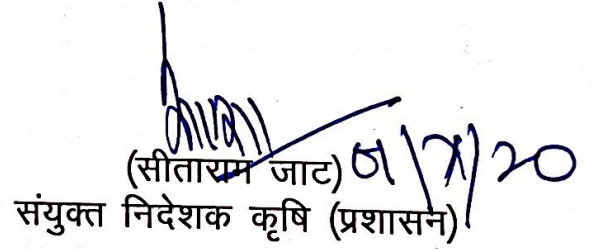 (सीताराम जाट) 01/X/20
संयुक्त निदेशक कृषि (प्रशासन)